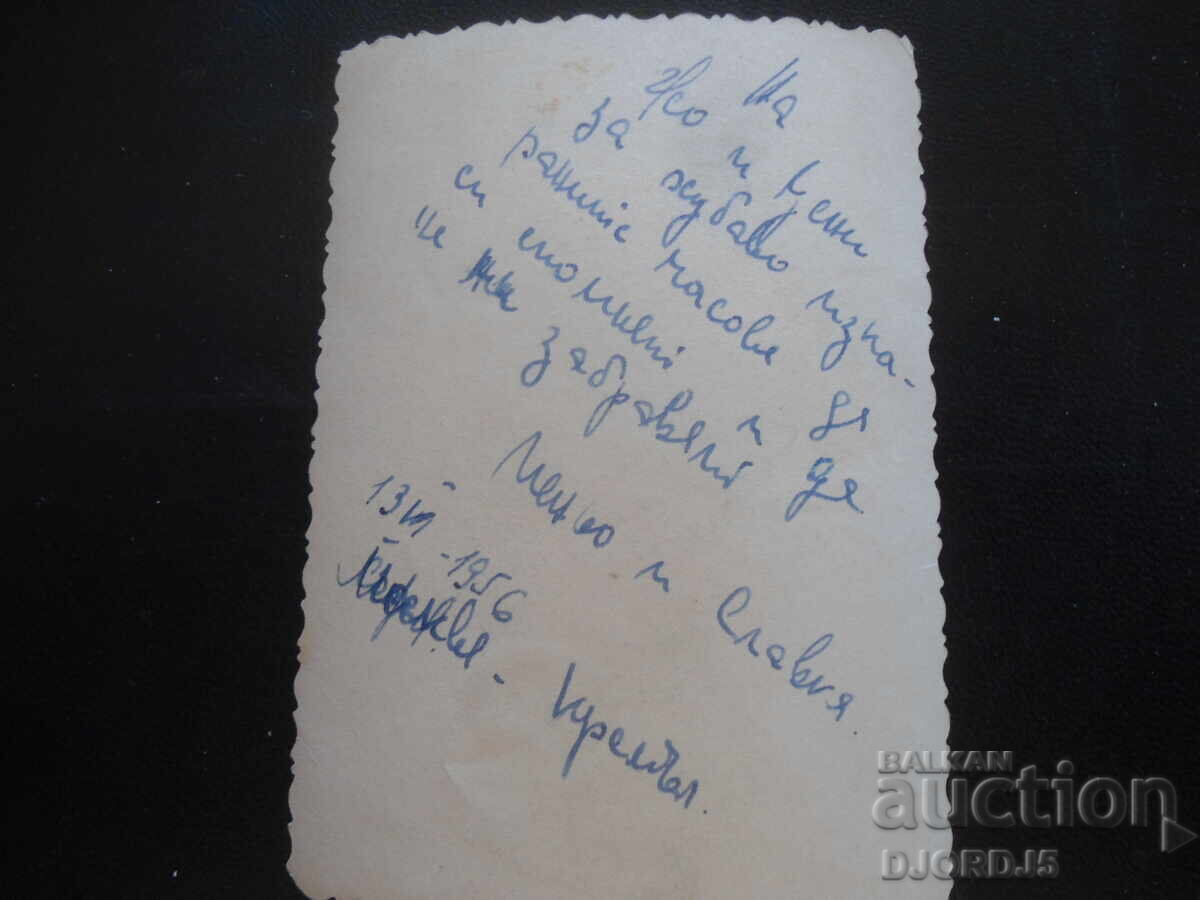 На
и Дени
за хубаво изка-
раните часове да
си спомнят и да
не ни забравят
Ненко и Славка
13 III - 1956
Москва - Кремъл.
BALKAN
auction
DJORDJ5